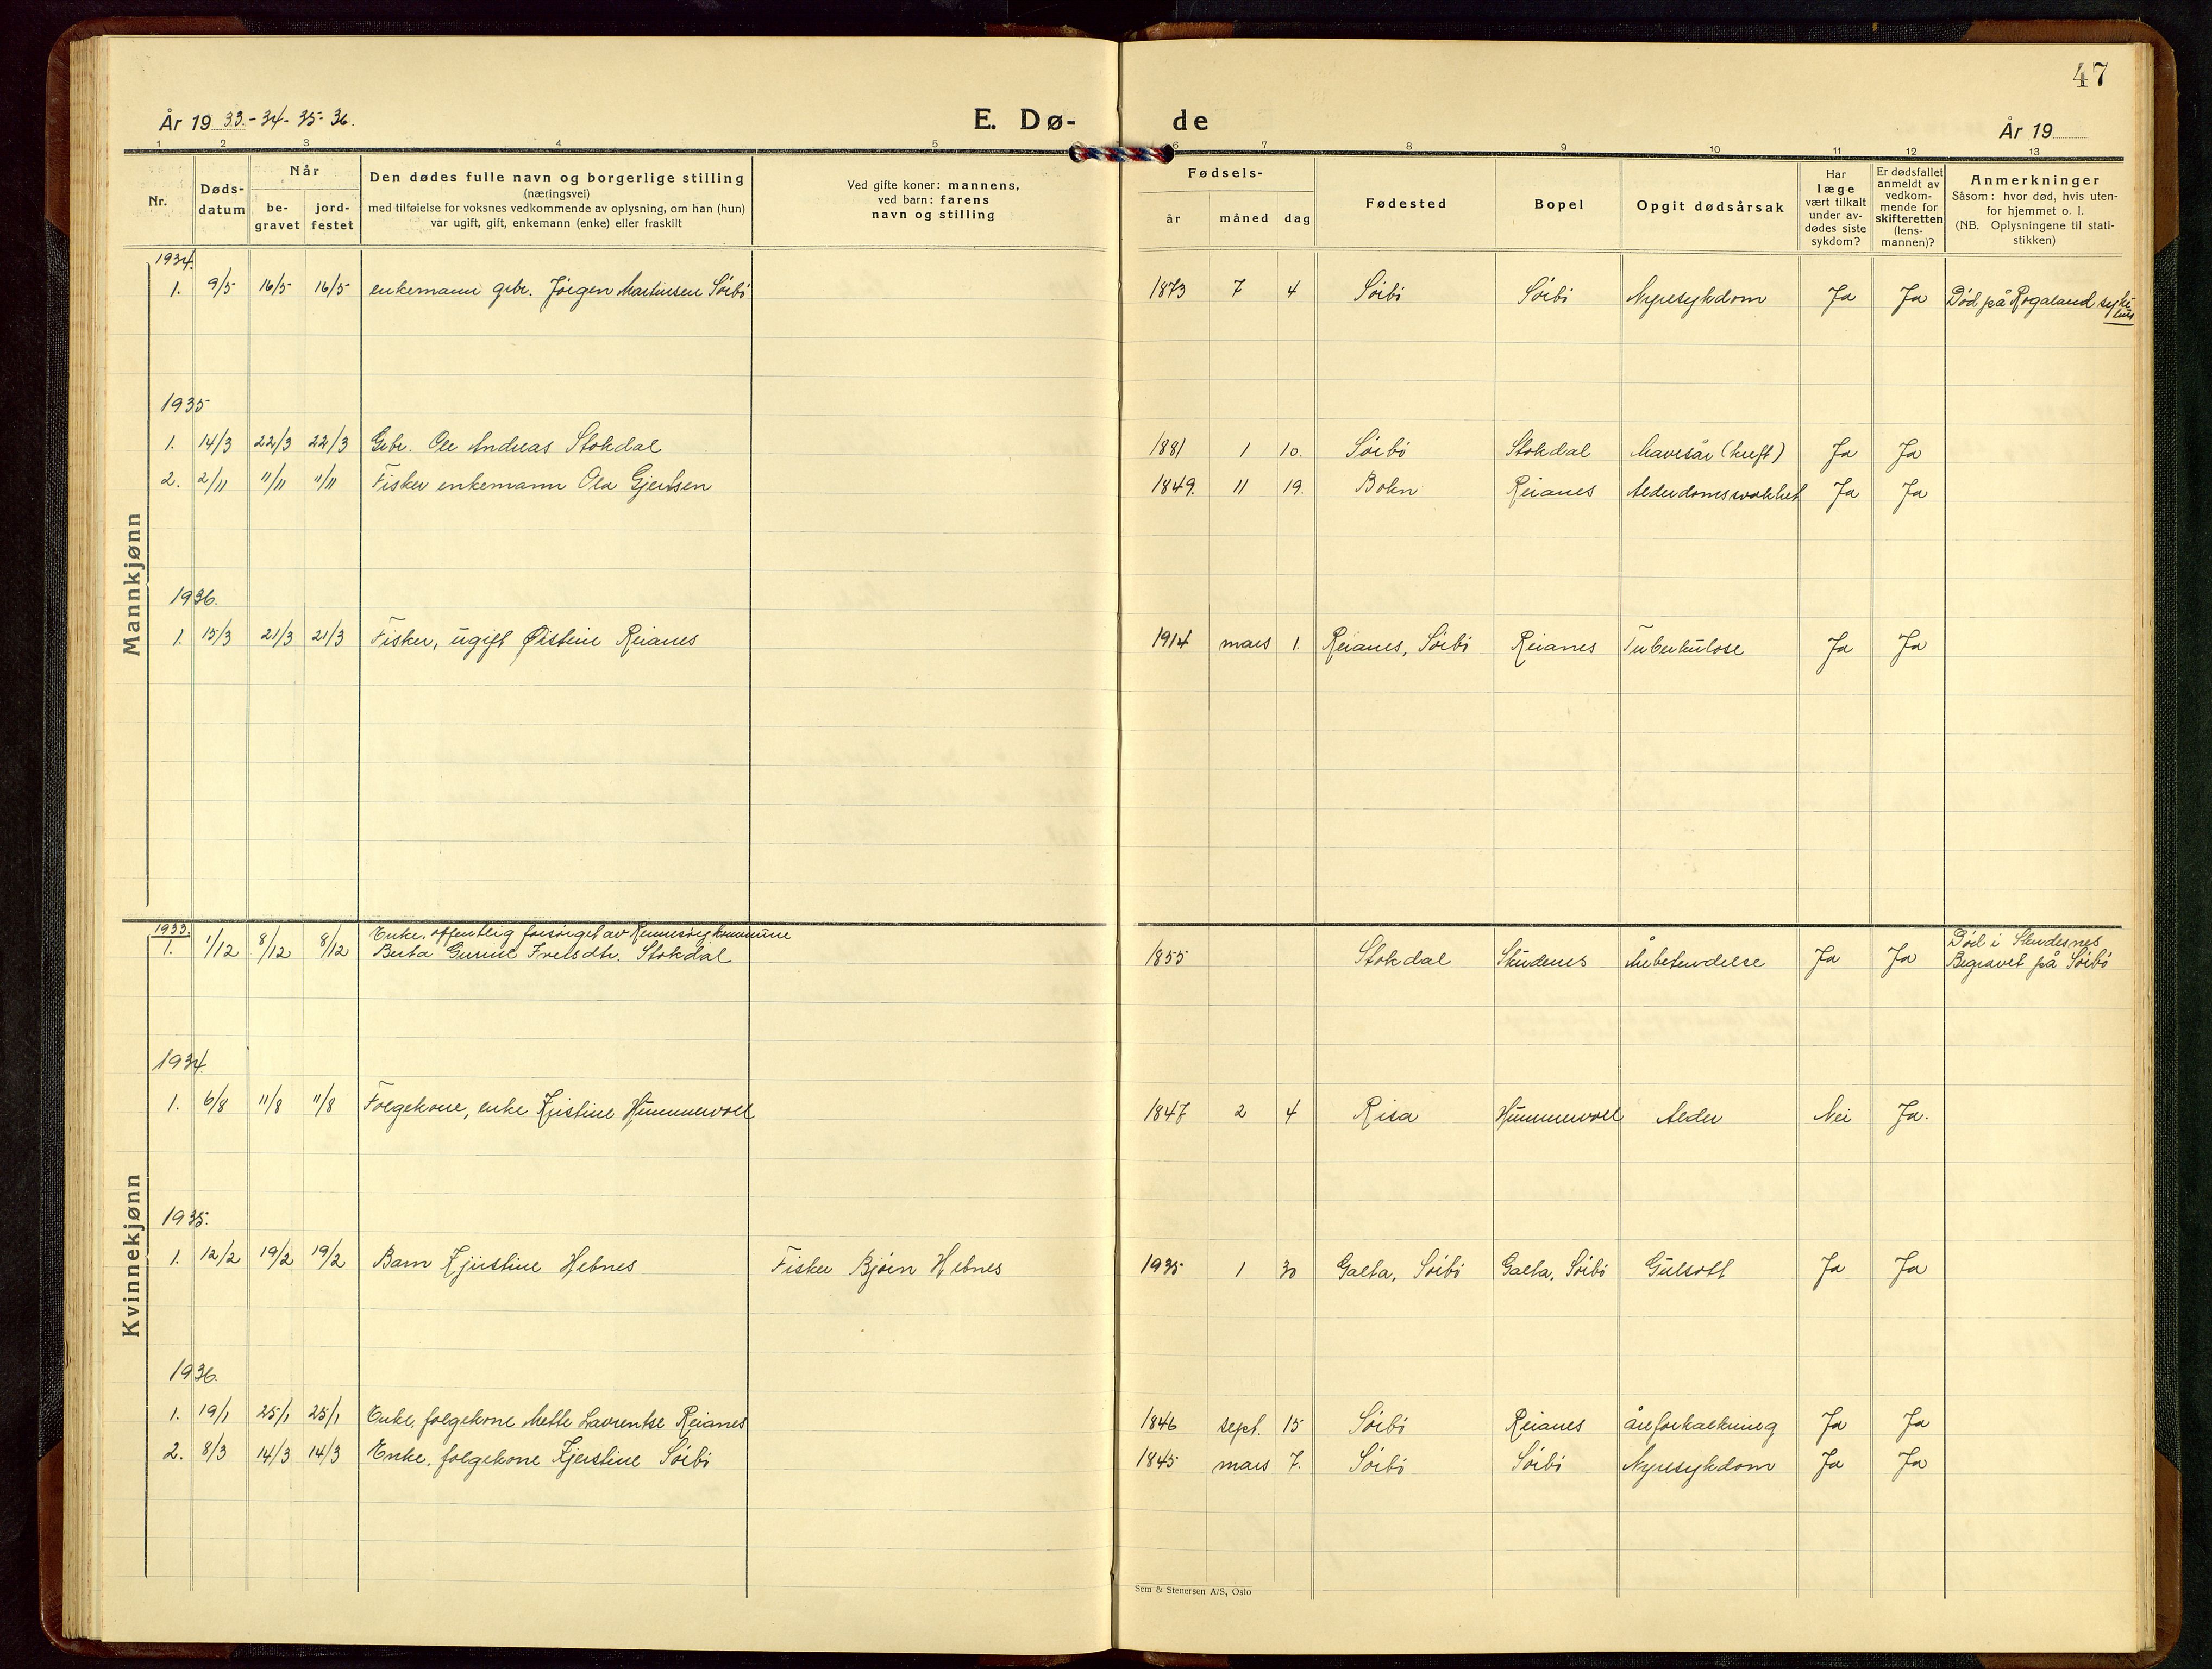 47
År 19 33.-34-35-36.
E. Dø- de
År 19
1 2 3 4 5 6 7 8 9 10 11 12 13
Nr.
Døds-
datum
Når
be-
gravet
jord-
festet
Den dødes fulle navn og borgerlige stilling
(næringsvei)
med tilføielse for voksnes vedkommende av oplysning, om han (hun)
var ugift, gift, enkemann (enke) eller fraskilt
Ved gifte koner: mannens,
ved barn: farens
navn og stilling
Fødsels-
år måned dag
Fødested
Bopel
Opgit dødsårsak
Har
læge
vært tilkalt
under av-
dødes siste
sykdom?
Er dødsfallet
anmeldt av
vedkom-
mende for
skifteretten
(lens-
mannen)?
Anmerkninger
Såsom: hvor død, hvis uten-
for hjemmet o. l.
(NB. Oplysningene til stati-
stikken)
Mannkjønn
1934.
1. 9/5 16/5 16/5 enkemann gbr. Jörgen Martinsen Sörbö 1873 7 4 Sörbö Sörbö Nyresykdom Ja Ja Död på Rogaland syke
hus
1935
1. 14/3 22/3 22/3 Gbr. Ole Andreas Stokdal 1881 1 10. Sörbö Stokdal Mavesår (kreft) Ja Ja
2. 2/11 11/11 11/11 Fisker enkemann Ola Gjertsen 1849. 11 19. Bokn Reianes Alderdomssvakhet Ja Ja
1936.
1. 15/3 21/3 21/3 Fisker, ugift Øistine Reianes 1914 mars 1. Reianes, Sörbö Reianes Tuberkulose Ja Ja
Kvinnekjønn
1933.
Enke, offentlig forsörget av Rennesöy kommune
1. 1/12 8/12 8/12 Berta Gurine Ivelsdtr. Stokdal 1855 Stokdal Skudenes Årebetendelse Ja Ja Död i Skudesnes
Begravet på Sörbö
1934.
1. 6/8 11/8 11/8 Folgekone, enke Kristine Hummervoll 1847 2 4 Risa Hummervoll Alder Nei Ja.
1935.
1. 12/2 19/2 19/2 Barn Kjerstine Hebnes Fisker Björn Hebnes 1935 1 30 Galta, Sörbö Galta, Sörbö Gulsott Ja Ja
1936.
1. 19/1 25/1 25/1 Enke, folgekone Mette Lavrentse Reianes 1846 sept. 15 Sörbö Reianes åreforkalkning Ja Ja
2. 8/3 14/3 14/3 Enke, folgekone Kjerstine Sörbö 1845 mars 7. Sörbö Sörbö Nyresykdom Ja Ja
Sem & Stenersen A/S, Oslo